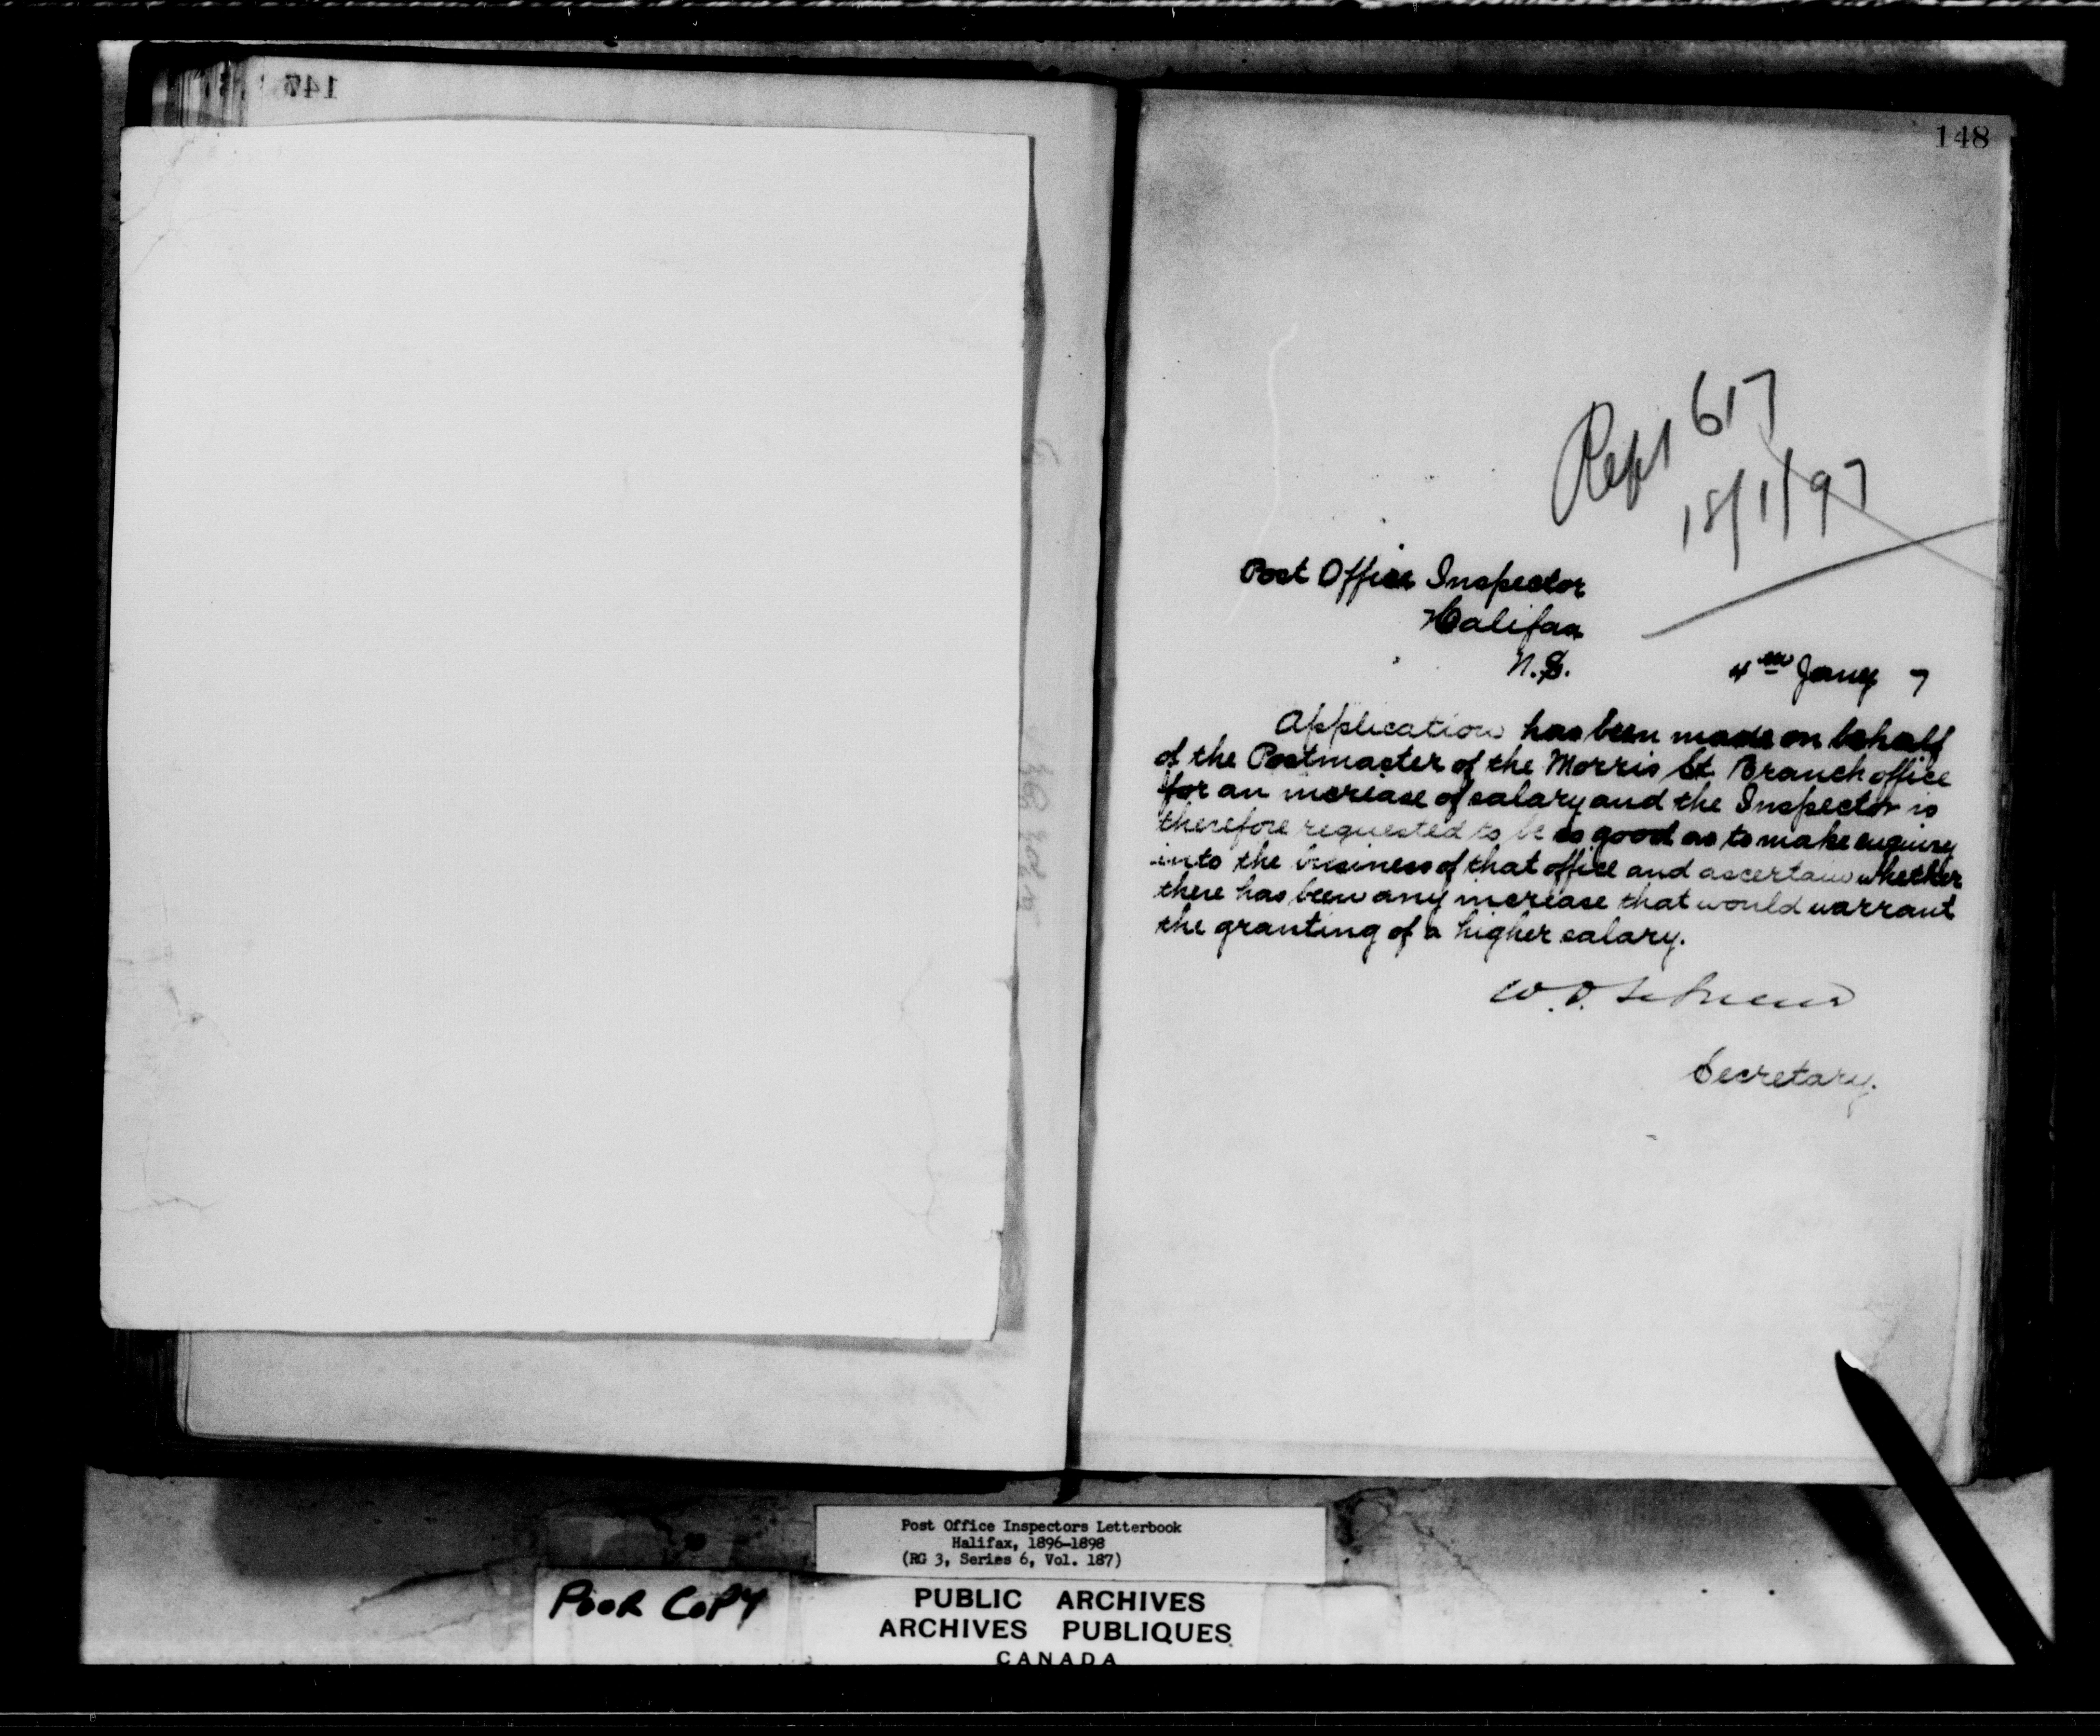 147
148
Rept 617
18/1/97
Post Office Inspector
Halifax
N.S.
4th Jany 7
Application has been made on behalf
of the Postmaster of the Morris St. Branch office
for an increase of salary and the Inspector is
therefore requested to be so good as to make enquiry
into the business of that office and ascertain whether
there has been any increase that would warrant
the granting of a higher salary.
W. D.
Secretary.
Post Office Inspectors Letterbook
Halifax, 1896-1898
(RG 3, Series 6, Vol. 187)
POOR COPY
PUBLIC ARCHIVES
ARCHIVES PUBLIQUES
CANADA